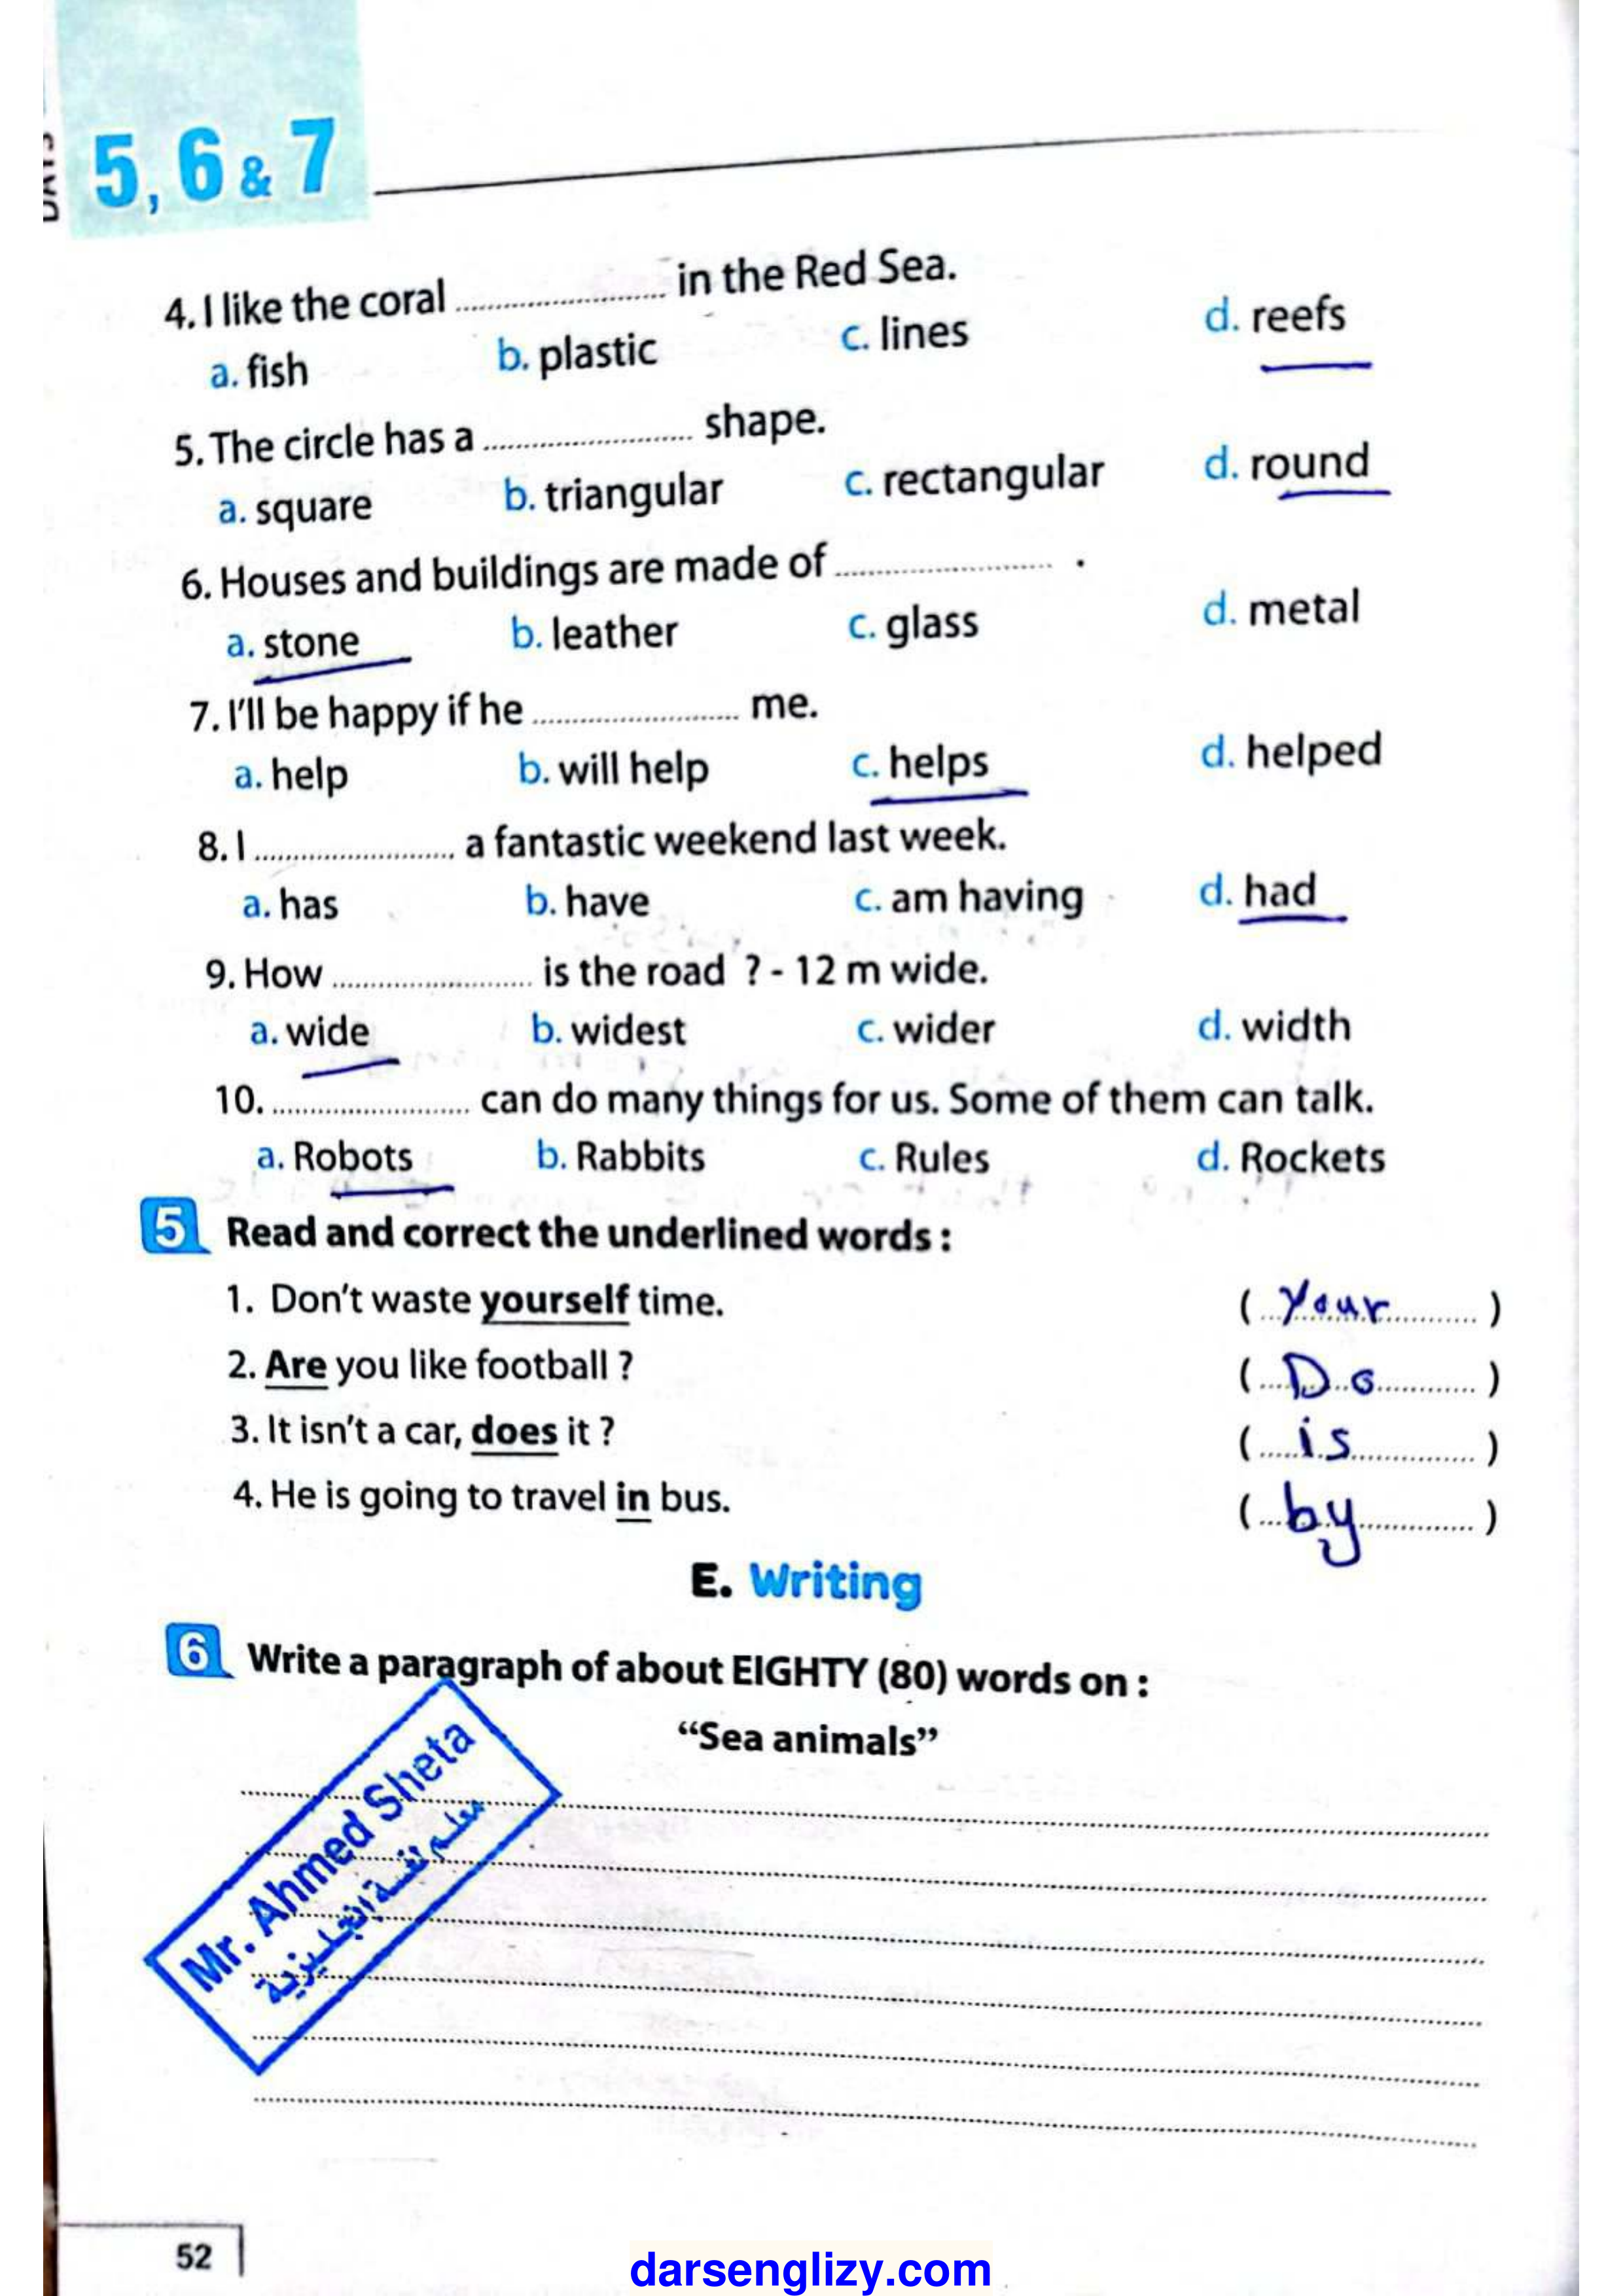 DAYS
5, 6 & 7
4. I like the coral ........................ in the Red Sea.
a. fish b. plastic c. lines d. reefs
5. The circle has a ........................ shape.
a. square b. triangular c. rectangular d. round
6. Houses and buildings are made of ........................ .
a. stone b. leather c. glass d. metal
7. I'll be happy if he ........................ me.
a. help b. will help c. helps d. helped
8. I ........................ a fantastic weekend last week.
a. has b. have c. am having d. had
9. How ........................ is the road ? - 12 m wide.
a. wide b. widest c. wider d. width
10. ........................ can do many things for us. Some of them can talk.
a. Robots b. Rabbits c. Rules d. Rockets
5 Read and correct the underlined words :
1. Don't waste yourself time. ( Your )
2. Are you like football ? ( Do )
3. It isn't a car, does it ? ( is )
4. He is going to travel in bus. ( by )
E. Writing
6 Write a paragraph of about EIGHTY (80) words on :
“Sea animals”
Mr. Ahmed Sheta
معلم لغة انجليزية
52
darsenglizy.com